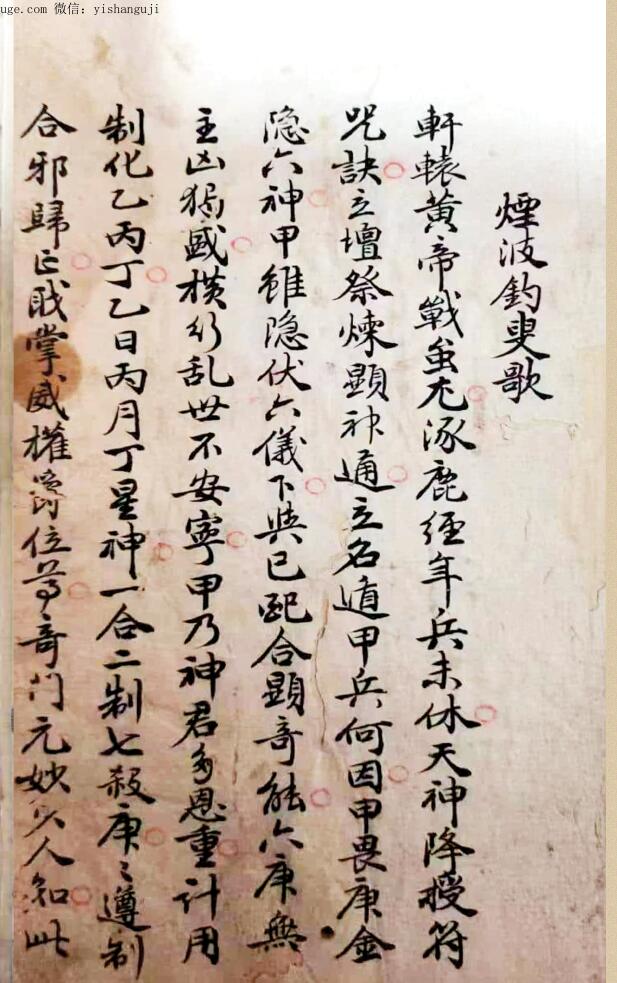 uge.com 微信：yishanguji
煙波釣叟歌
軒轅黃帝戰蚩尤涿鹿经年兵未休天神降授符
咒訣立壇祭煉顯神通立名遁甲兵何因甲畏庚金
隐六神甲雖隐伏六儀下與己配合顯奇能六庚無
主凶猖盛横行乱世不安寧甲乃神君多恩重计用
制化乙丙丁乙日丙月丁星神一合二制七殺庚〻遵制
合邪歸正戝掌威權爵位尊奇门元妙少人知此